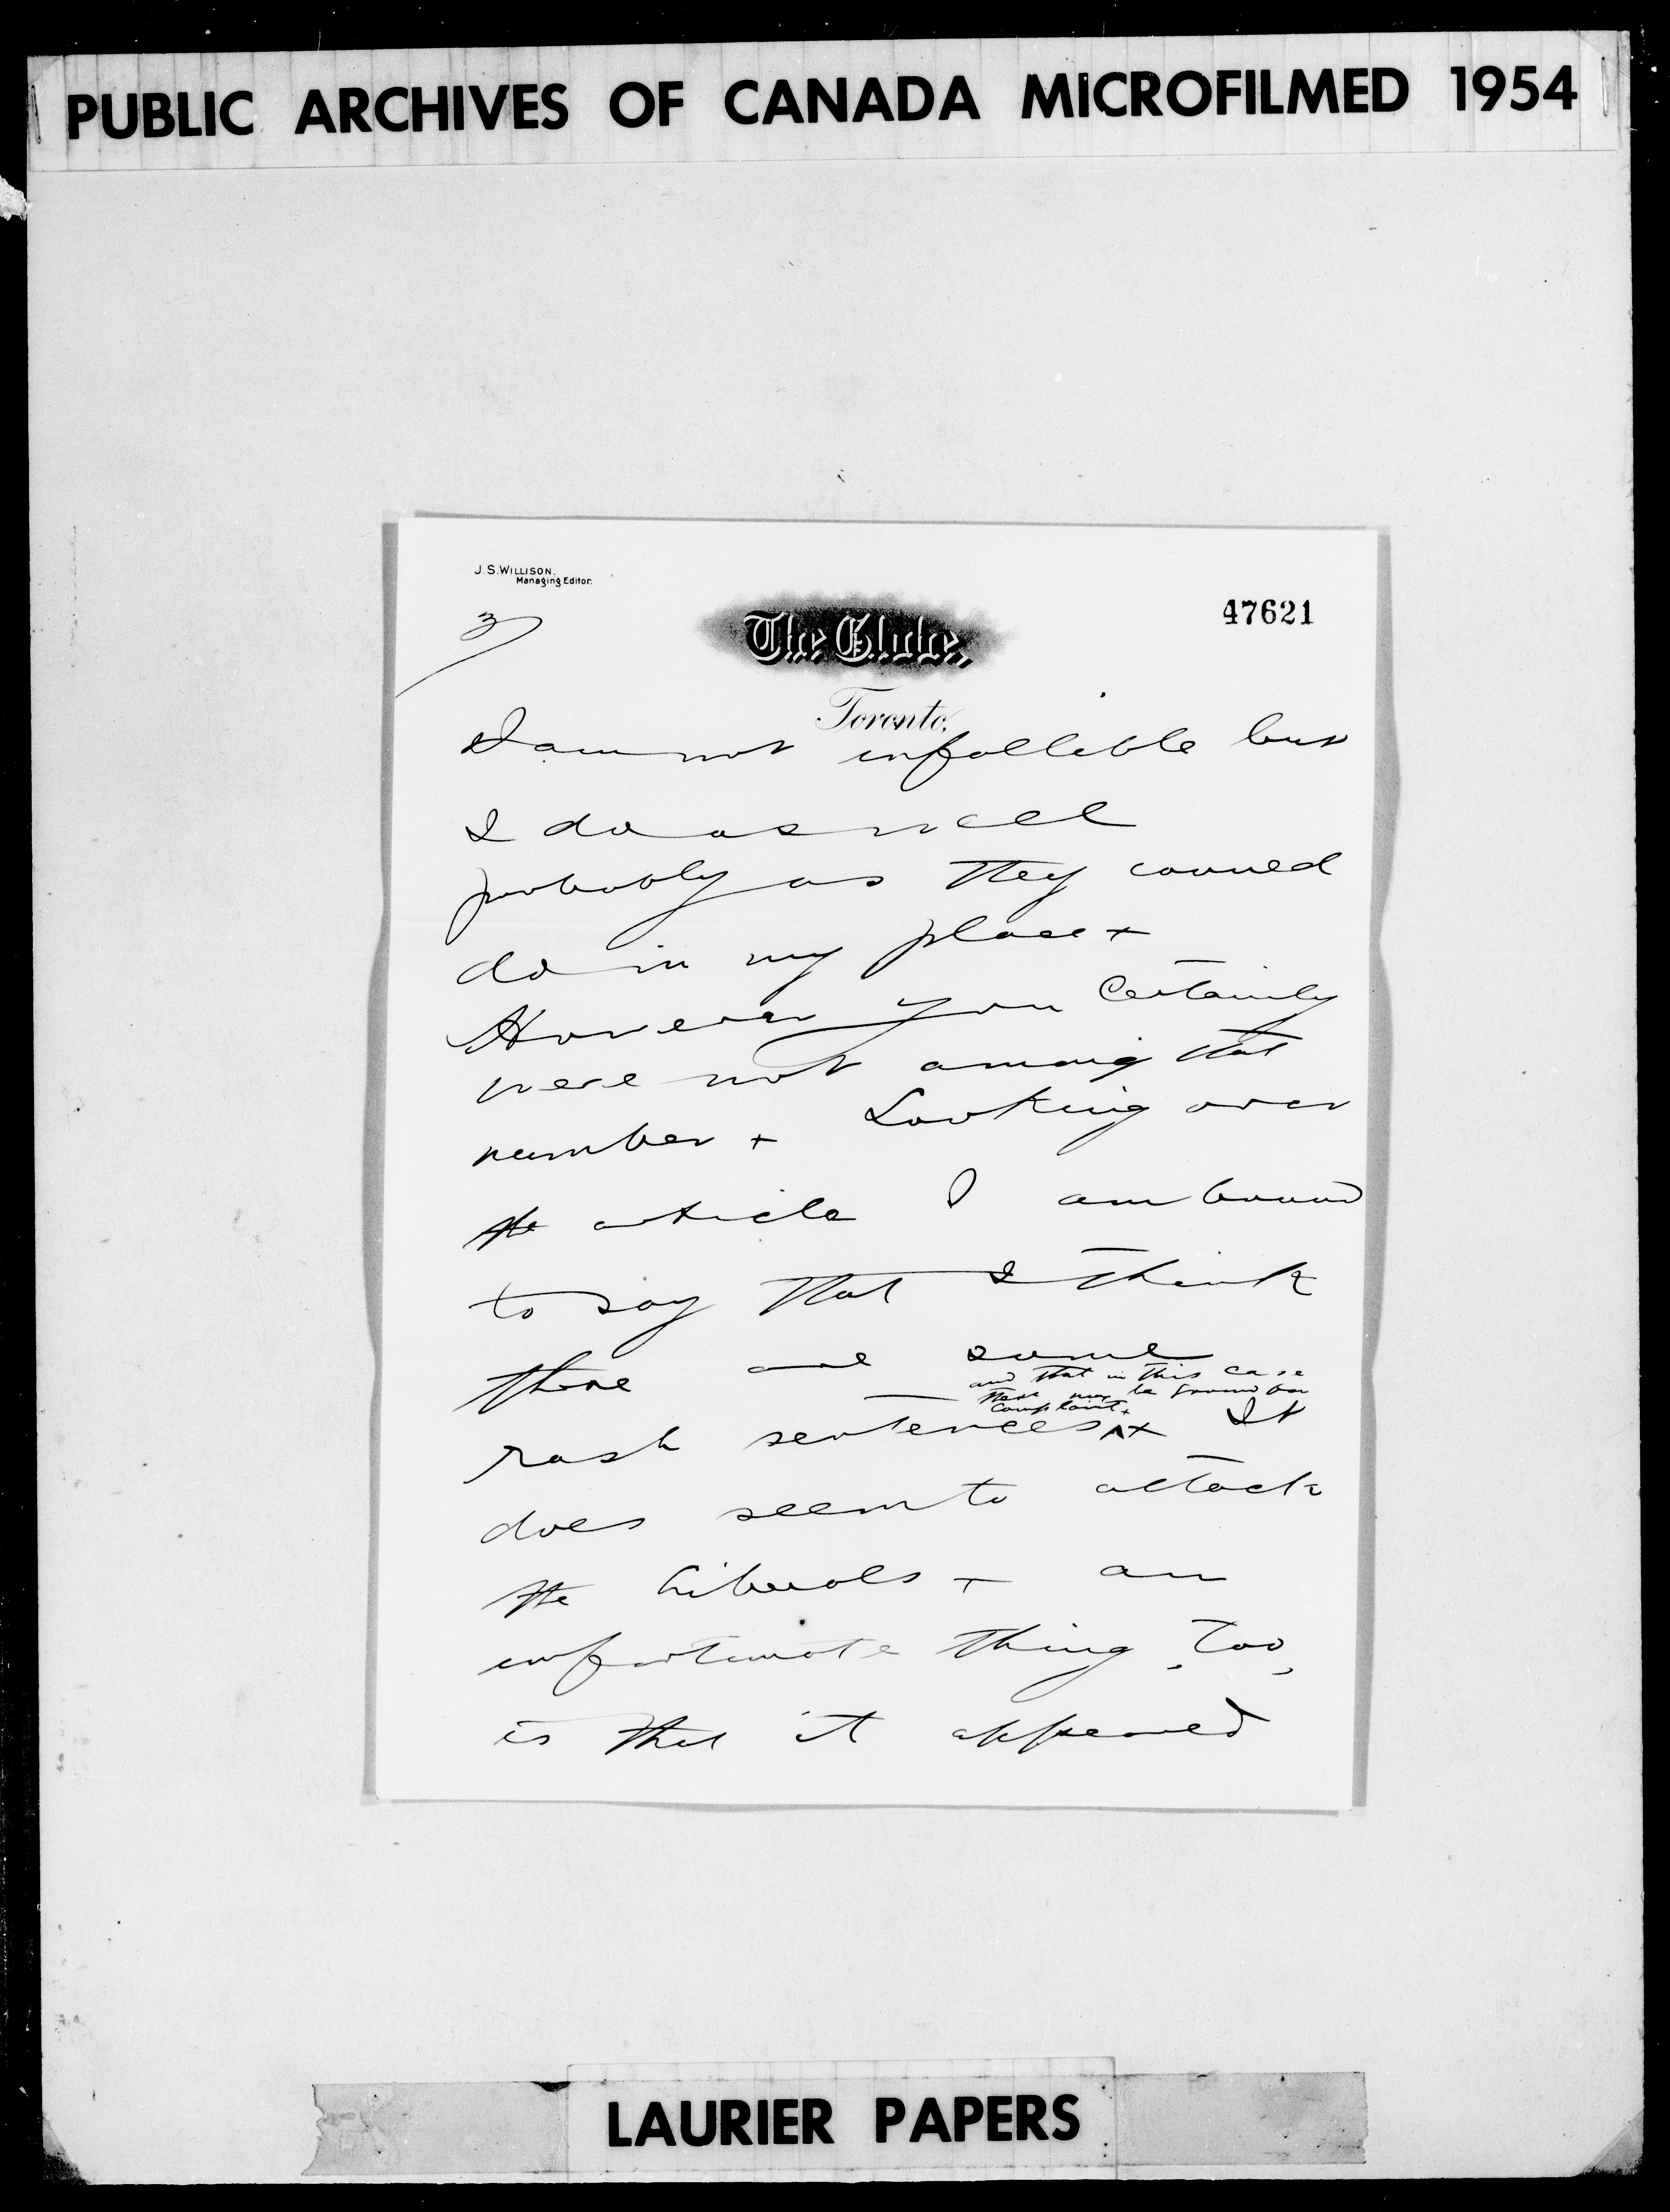 PUBLIC ARCHIVES OF CANADA MICROFILMED 1954
J.S. WILLISON.
Managing Editor.
47621
3)
The Globe,
Toronto,
I am not infallible but
I do as well
probably as they could
do in my place +
However you certainly
were not among that
number + Looking over
the article I am bound
to say that I think
there are some
and that in this case
there may be ground for
complaint +
rash sentences ^ + It
does seem to attack
the Liberals + an
unfortunate thing, too,
is that it appeared
LAURIER PAPERS